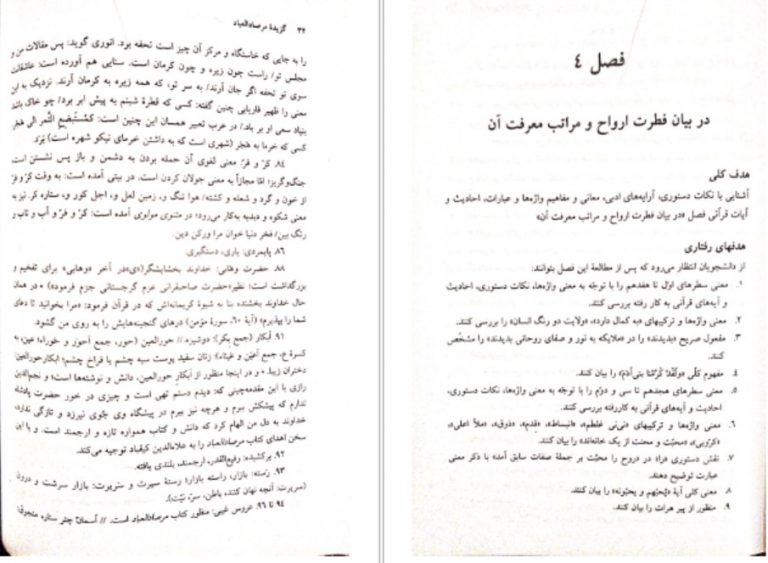 ۳۲ گزیدهٔ مرصادالعباد
را به جایی که خاستگاه و مرکز آن چیز است تحفه برد. انوری گوید: پس مقالات من و
مجلس تو/ راست چون زیره و چون کرمان است. سنایی هم آورده است: عاشقانت
سوی تو تحفه اگر جان آرند/ به سر تو، که همه زیره به کرمان آرند. نزدیک به این
معنی را ظهیر فاریابی چنین گفته: کسی که قطرهٔ شبنم به پیش ابر برد/ چو خاک باشد
بنیاد سعی او بر باد./ در عرب تعبیر همسان این چنین است: کمُستَبضِعِ التَّمر الی هَجَر
کسی که خرما به هَجَر (شهری است که به داشتن خرمای نیکو شهره است) بَرَد.
۸۴. کرّ و فرّ: معنی لغوی آن حمله بردن به دشمن و باز پس نشستن است
جنگ‌وگریز؛ امّا مجازاً به معنی جولان کردن است. در بیتی آمده است: به وقت کرّ و فرّ
از خون و گرد و شعله و کشته/ هوا تنگ و، زمین لعل و، اجل کور و، ستاره کر. نیز به
معنی شکوه و دبدبه به‌کار می‌رود؛ در مثنوی مولوی آمده است: کرّ و فرّ و آب و تاب و
رنگ بین/ فخر دنیا خوان مرا ورکن دین.
۸۶. پایمردی: یاری، دستگیری.
۸۸. حضرت وهّابی: خداوند بخشایشگر(«ی»در آخر «وهابی» برای تفخیم و
بزرگداشت است؛ نظیرِ«حضرت صاحبقرانی عزم گرجستانی جزم فرمود») • در همان
حال خداوند بخشنده بنا به شیوهٔ کریمانه‌اش که در قرآن فرمود: «مرا بخوانید تا دعای
شما را بپذیرم» (آیهٔ ۶۰، سورهٔ مؤمن) درهای گنجینه‌هایش را به روی من گشود.
۹۱. اَبکار (جمعِ بِکر): دوشیزه. // حورالعین (حور، جمع اَحوَر و حَوراء؛ عین، به
کسرهٔ ع، جمع اَعیَن و عَیناء): زنان سفید پوست سیه چشم یا فراخ چشم؛ ابکارحورالعین
دختران زیبا. • و در اینجا منظور از ابکارِ حورالعین، دانش و نوشته‌ها است؛ و نجم‌الدین
رازی با این مقدمه‌چینی که: دیدم دستم تهی است و چیزی در خور حضرت پادشاه
ندارم که پیشکش ببرم و هرچه نیز ببرم در پیشگاه وی جُوی نیرزد و تازگی ندارد،
خداوند به دل من الهام کرد که دانش و کتاب همواره تازه و ارجمند است. و با این
سخن اهدای کتاب مرصادالعباد را به علاءالدین کیقباد توجیه می‌کند.
۹۲. برکشیده: رفیع‌القدر، ارجمند، بلندی یافته.
۹۳. رَسته: بازار، راسته بازار؛ رستهٔ سیرت و سریرت: بازار سرشت و درون
(سریرت: آنچه نهان کنند، باطن، سرّ، نیّت).
۹۴ تا ۹۶. عروس غیبی: منظور کتاب مرصادالعباد است. // آسمان چتر ستاره منجوق:
فصل ۴
در بیان فطرت ارواح و مراتب معرفت آن
هدف کلی
آشنایی با نکات دستوری، آرایه‌های ادبی، معانی و مفاهیم واژه‌ها و عبارات، احادیث و
آیات قرآنی فصل «در بیان فطرت ارواح و مراتب معرفت آن»
هدفهای رفتاری
از دانشجویان انتظار می‌رود که پس از مطالعهٔ این فصل بتوانند:
۱. معنی سطرهای اول تا هفدهم را با توجّه به معنی واژه‌ها، نکات دستوری، احادیث
و آیه‌های قرآنی به کار رفته بررسی کنند.
۲. معنی واژه‌ها و ترکیبهای «به کمال دارد»، «ولایت دو رنگ انسان» را بررسی کنند.
۳. مفعول صریح «بدیدند» را در «ملایکه به نور و صفای روحانی بدیدند» را مشخّص
کنند.
۴. مفهوم کلّی «وَلَقَد کَرَّمْنا بنی‌آدَمَ» را بیان کنند.
۵. معنی سطرهای هجدهم تا سی و دوّم را با توجّه به معنی واژه‌ها، نکات دستوری،
احادیث و آیه‌های قرآنی به‌کاررفته بررسی کنند.
۶. معنی واژه‌ها و ترکیبهای «نی‌نی غلطم»، «انبساط»، «قِدَم»، «ذوق»، «ملأ اعلی»،
«کرّوبی»، «محبّت و محنت از یک خانه‌اند» را بیان کنند.
۷. نقش دستوری «را» در «روح را محبّت بر جملهٔ صفات سابق آمد» با ذکر معنی
عبارت توضیح دهند.
۸. معنی کلی آیهٔ «یُحبّهم و یحبّونه» را بیان کنند.
۹. منظور از پیر هرات را بیان کنند.